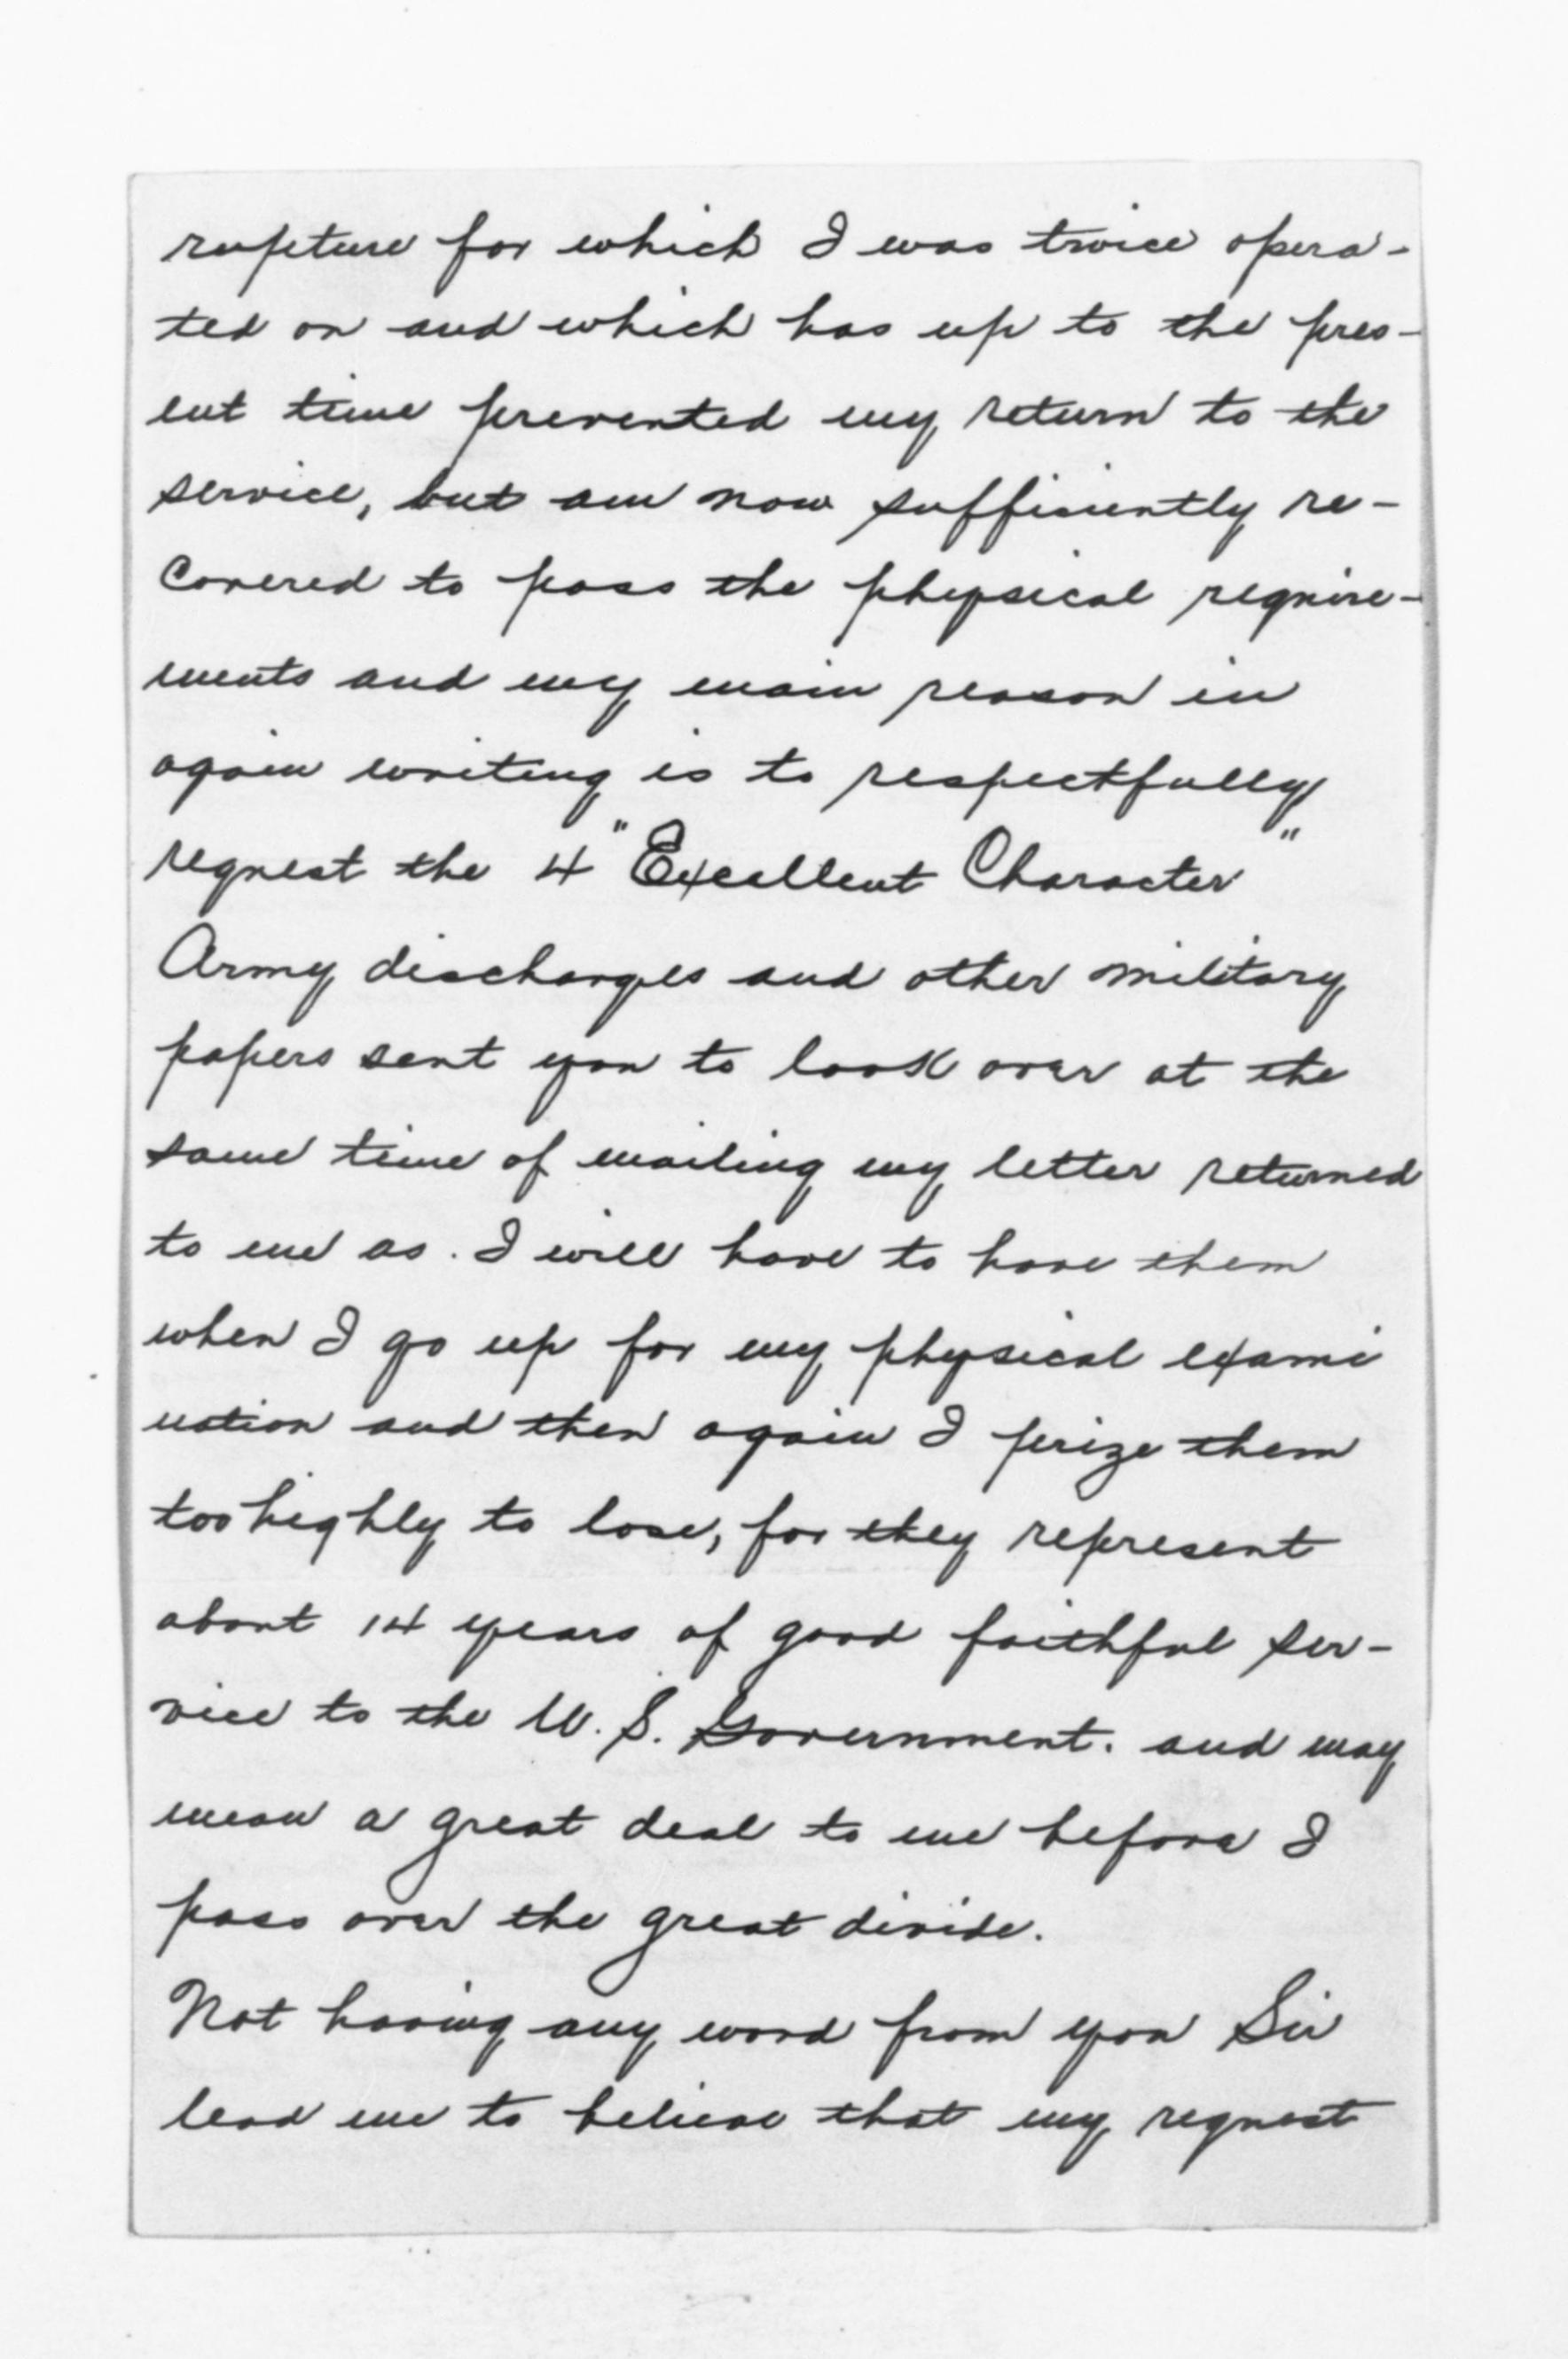 rupture for which I was twice opera-
ted on and which has up to the pres-
ent time prevented my return to the
service, but am now sufficiently re-
covered to pass the physical require-
ments and my main reason in
again writing is to respectfully
request the 4 "Excellent Character"
Army discharges and other military
papers sent you to look over at the
same time of mailing my letter returned
to me as. I will have to have them
when I go up for my physical exami
nation and then again I prize them
too highly to lose, for they represent
about 14 years of good faithful ser-
vice to the U.S. Government. and may
mean a great deal to me before I
pass over the great divide.
Not having any word from you Sir
lead me to believe that my request